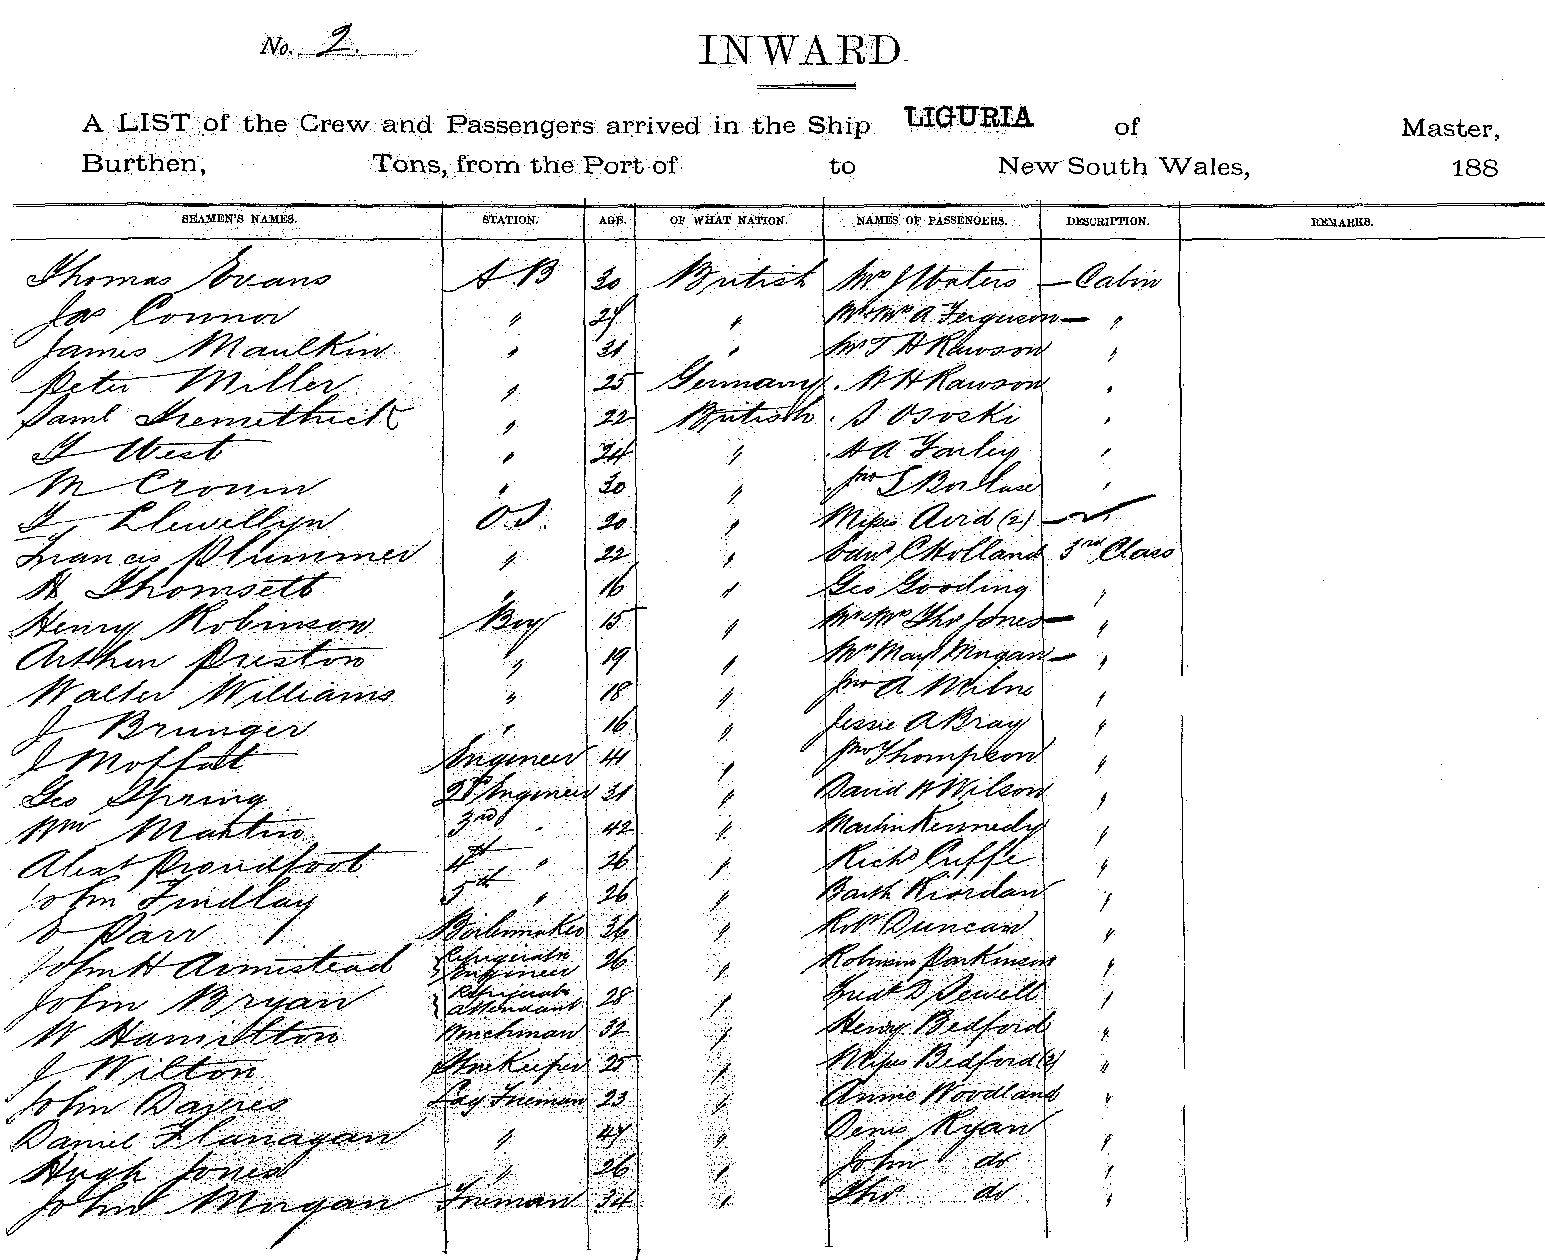 No. 2.
INWARD.
A LIST of the Crew and Passengers arrived in the Ship LIGURIA of Master,
Burthen, Tons, from the Port of to New South Wales, 188
SEAMEN'S NAMES. STATION. AGE. OF WHAT NATION. NAMES OF PASSENGERS. DESCRIPTION. REMARKS.
Thomas Evans A B 30 British Mrs J Waters — Cabin
Jas Connor " 27 " Mr & Mrs A Ferguson — "
James Maulkin " 31 " Mr T H Rawson "
Peter Miller " 25 Germany " W H Rawson "
Saml Tremethick " 22 British " S Ososki "
T West " 24 " " A A Farley "
M Cronin " 30 " " Jno S Borlase "
T Llewellyn O S. 20 " Misses Aird (2) — "
Francis Plummer " 22 " Edwd C Holland 3rd Class
H Thomsett " 16 " Geo Gooding "
Henry Robinson Boy 15 " Mr & Mrs Thos Jones — "
Arthur Preston " 19 " Mrs Mary Morgan — "
Walter Williams " 18 " Jno A Milne "
J Brunger " 16 " Jessie A Bray "
J Moffat Engineer 41 " Jno Thompson "
Geo Spring 2nd Engineer 31 " David W Wilson "
Wm Martin 3rd " 42 " Martin Kennedy "
Alext Proudfoot 4th " 26 " Richd Cuffe "
John Findlay 5th " 26 " Barth Riordan "
D Parr Boilermaker 36 " Robt Duncan "
John H Armistead Refrigerator Engineer 26 " Robinson Parkinson "
John Bryan Refrigerator Attendant 28 " Fredk D Sewell "
W Hamilton Winchman 32 " Henry Bedford "
J Wilton Storekeeper 25 " Misses Bedford (2) "
John Davies Ldg Fireman 23 " Annie Woodland "
Daniel Flanagan " 47 " Denis Ryan "
Hugh Jones " 26 " John do "
John Morgan Fireman 34 " Thos do "